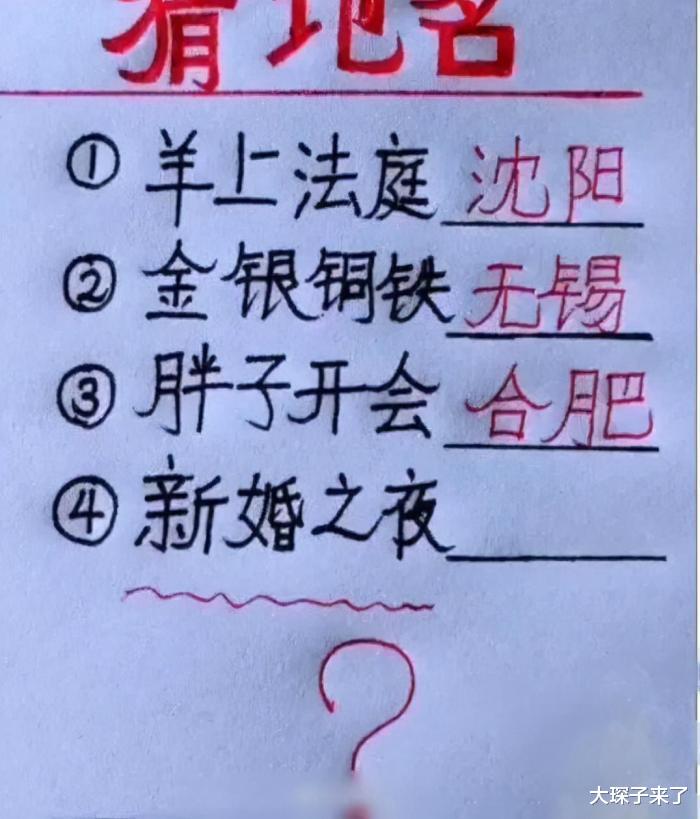 猜地名
① 羊上法庭 沈阳
② 金银铜铁 无锡
③ 胖子开会 合肥
④ 新婚之夜
?
大琛子来了